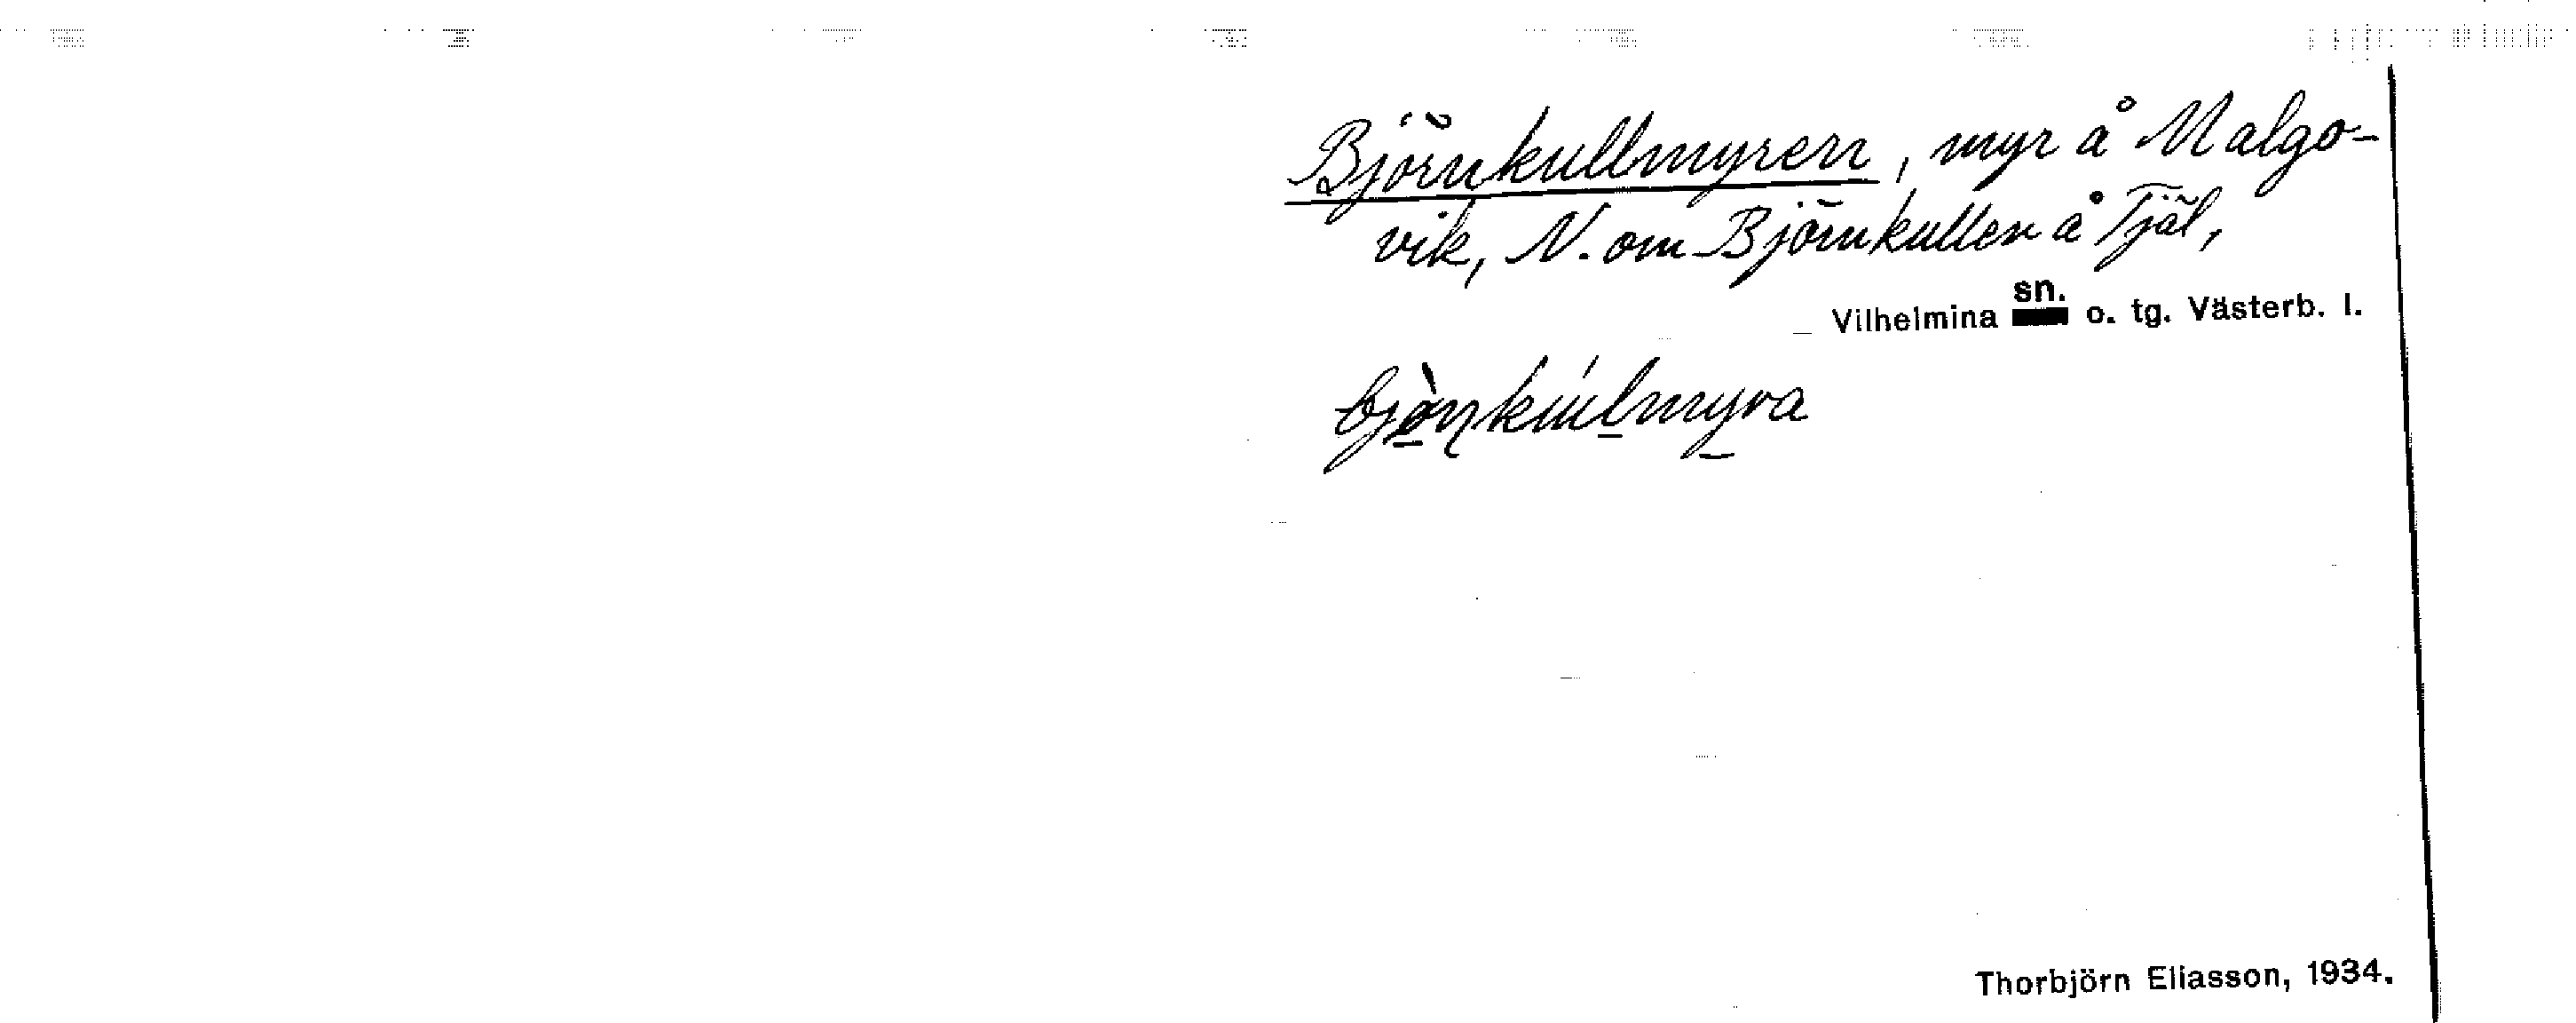 Björnkullmyren, myr å Malgo-
vik, N. om Björnkullen å Tjäl,
Vilhelmina sn. o. tg. Västerb. l.
Thorbjörn Eliasson, 1934.